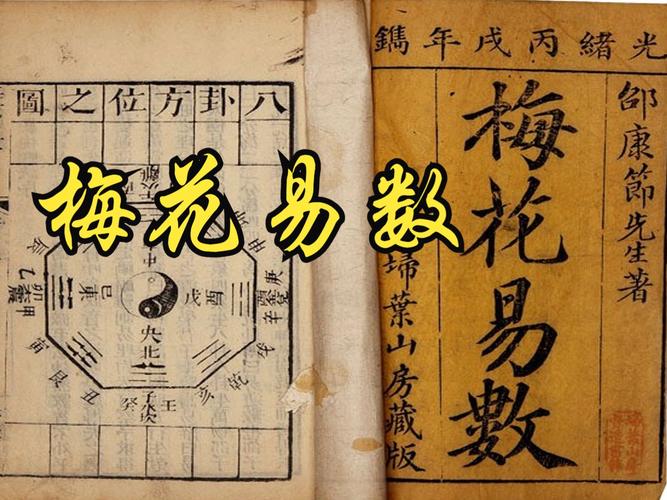 光緒丙戌年鐫
邵康節先生著
梅花易數
埽葉山房藏版
八卦方位之圖
梅花易数
中
央
北
東
酉
庚
辛
戌
乾
亥
壬
子水坎
癸
丑
艮
寅
甲
卯
乙